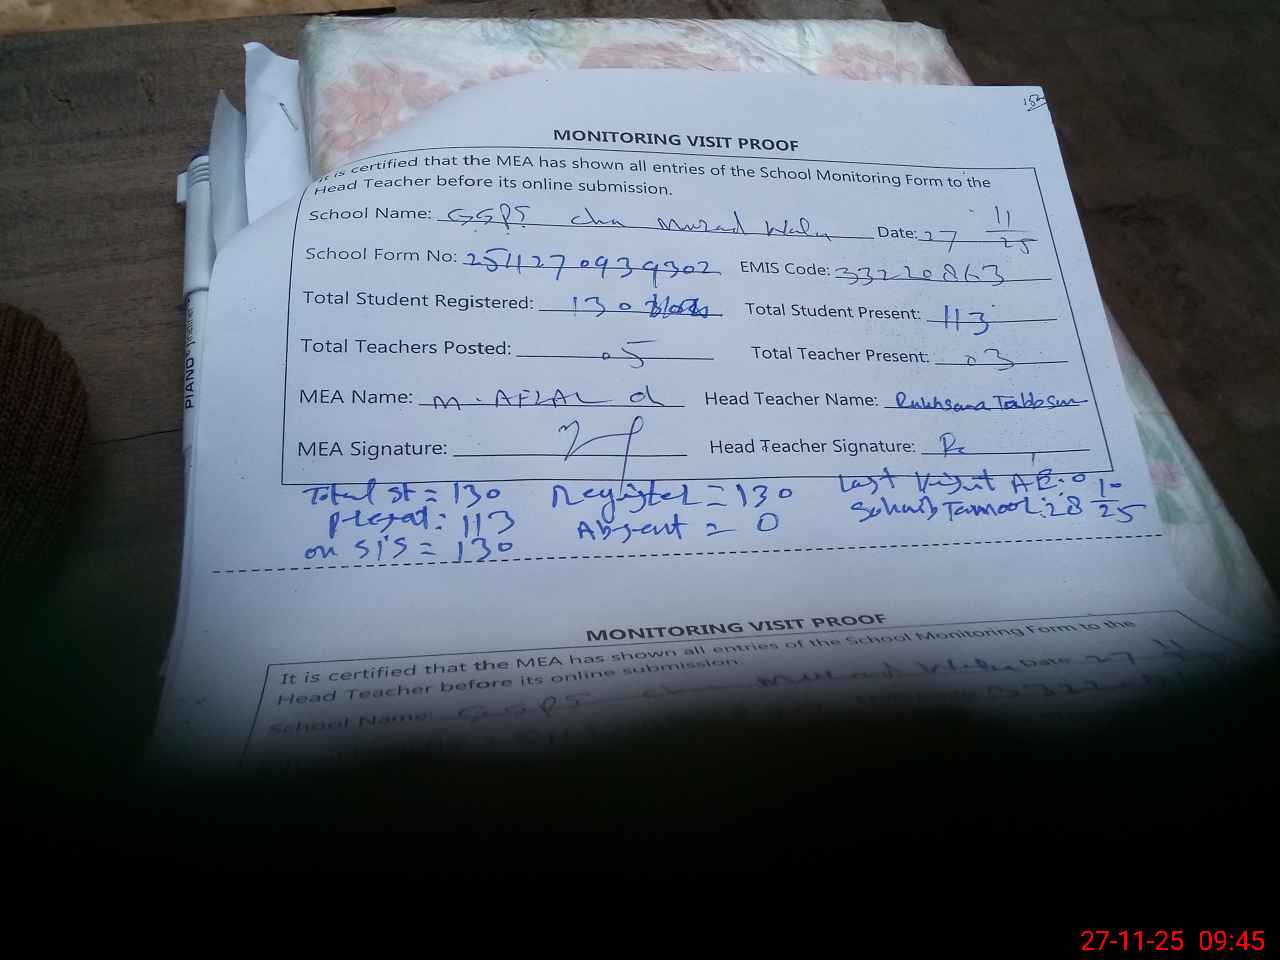 152
MONITORING VISIT PROOF
It is certified that the MEA has shown all entries of the School Monitoring Form to the
Head Teacher before its online submission.
School Name: GGPS Cha Murad Wala Date: 27 11/25
School Form No: 2541270939302 EMIS Code: 33220863
Total Student Registered: 130 Total Student Present: 113
Total Teachers Posted: 05 Total Teacher Present: 03
MEA Name: M. AFZAL Head Teacher Name: Rukhsana Tabbsum
MEA Signature: Head Teacher Signature:
Total St = 130 Register = 130 Last Visit AEO
Present: 113 Absent = 0 28 10/25
on SIS = 130
MONITORING VISIT PROOF
It is certified that the MEA has shown all entries of the School Monitoring Form to the
Head Teacher before its online submission.
School Name: GGPS Cha Murad Wala Date: 27
PIANO
27-11-25 09:45